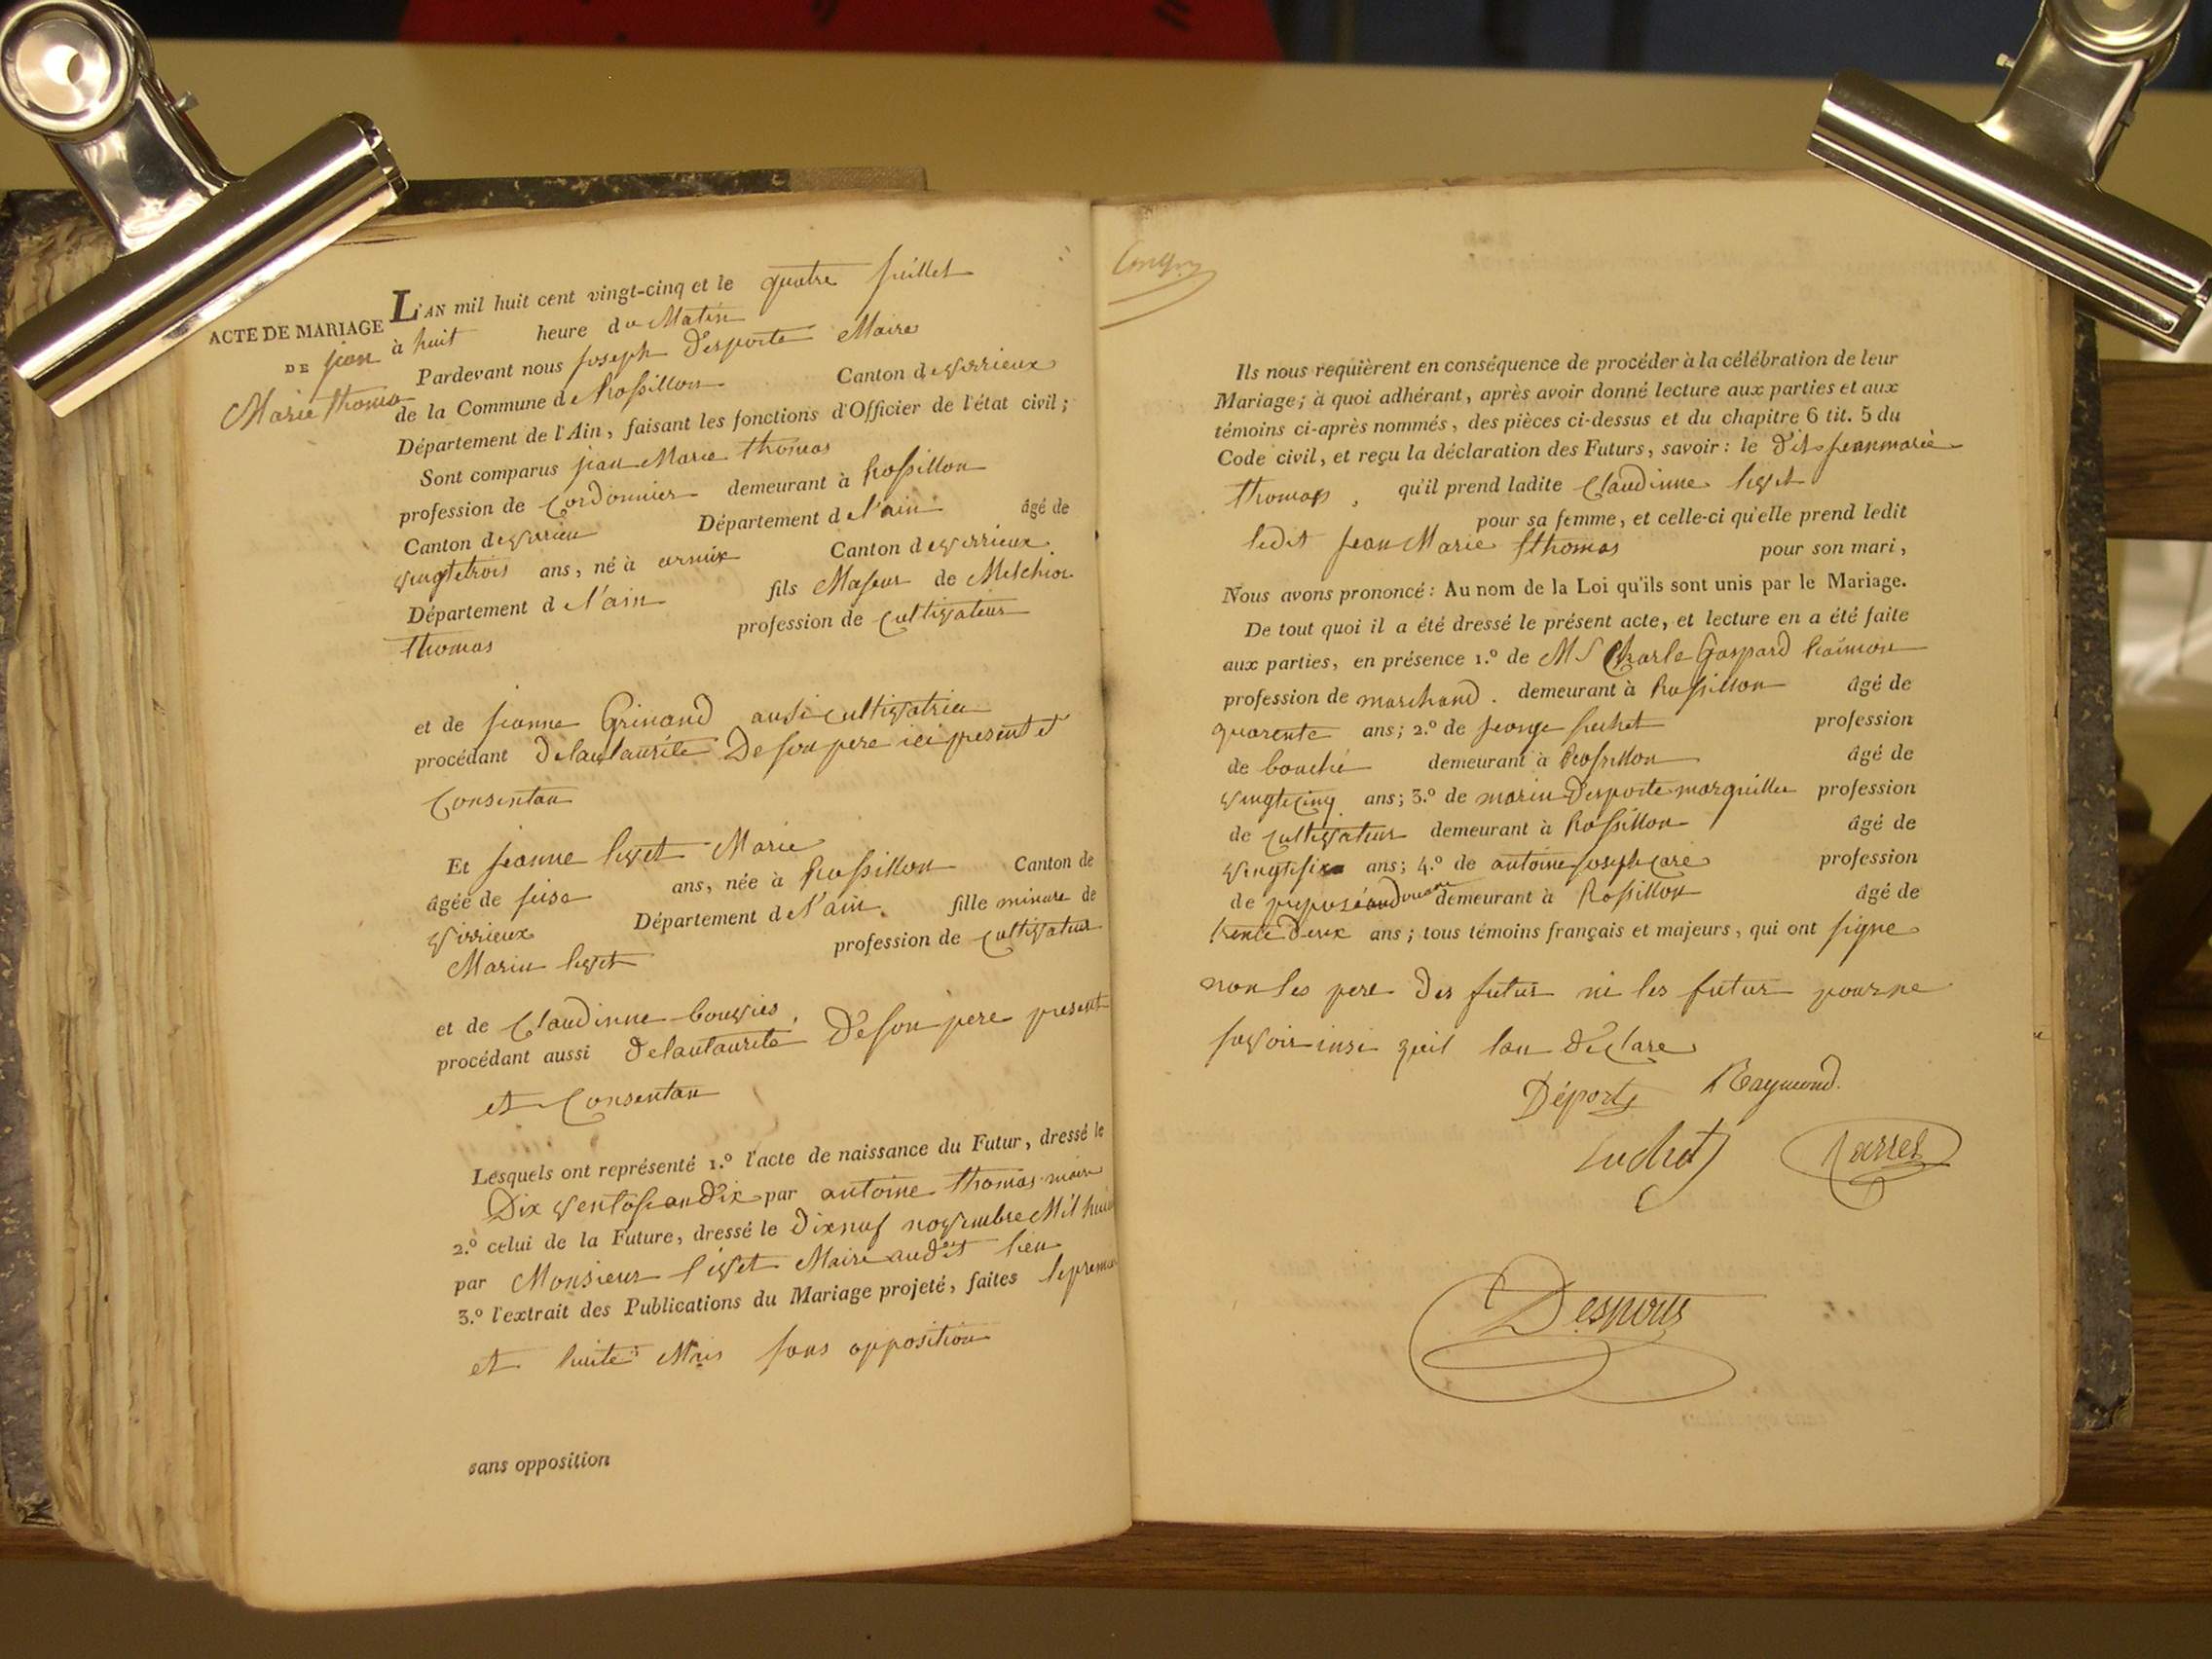 ACTE DE MARIAGE
DE jean
Marie thomas
L'AN mil huit cent vingt-cinq et le quatre juillet
à huit heure du Matin
Pardevant nous joseph Desporte Maire
de la Commune de Rossillon Canton de virrieux
Département de l'Ain, faisant les fonctions d'Officier de l'état civil;
Sont comparus jean Marie thomas
profession de Cordonnier demeurant à Rossillon
Canton de virrieu Département d l'ain âgé de
vingtetrois ans, né à armix Canton de virrieux
Département d l'ain fils Majeur de Melchior
thomas profession de Cultivateur
et de jeanne Grinand ausi cultivatrice
procédant delautaurite De son pere ici present et
Consentan
Et jeanne livet Marie
âgée de seise ans, née à Rossillon Canton de
virrieux Département de l'ain. fille mineure de
Mariu livet profession de Cultivateur
et de Claudinne bouvier,
procédant aussi delautaurite De son pere present
et Consentan
Lesquels ont représenté 1.º l'acte de naissance du Futur, dressé le
Dix ventose an dix par antoine thomas maire
2.º celui de la Future, dressé le dixneuf novembre Mil huit
par Monsieur livet Maire audit lieu
3.º l'extrait des Publications du Mariage projeté, faites le premier
et huite sans opposition
sans opposition
Ils nous requièrent en conséquence de procéder à la célébration de leur
Mariage; à quoi adhérant, après avoir donné lecture aux parties et aux
témoins ci-après nommés, des pièces ci-dessus et du chapitre 6 tit. 5 du
Code civil, et reçu la déclaration des Futurs, savoir: le dit jeanmarie
thomas, qu'il prend ladite Claudinne livet
pour sa femme, et celle-ci qu'elle prend ledit
ledit jean Marie thomas pour son mari,
Nous avons prononcé: Au nom de la Loi qu'ils sont unis par le Mariage.
De tout quoi il a été dressé le présent acte, et lecture en a été faite
aux parties, en présence 1.º de Charle Gaspard
profession de marchand. demeurant à Rossillon âgé de
quarente ans; 2.º de profession
de bouché demeurant à Rossillon âgé de
vingtecinq ans; 3.º de mariu Desporte marquiller profession
de Cultivateur demeurant à Rossillon âgé de
vingtesix ans; 4.º de antoine joseph profession
de preposé demeurant à Rossillon âgé de
trente deux ans; tous témoins français et majeurs, qui ont signe
non les pere des futur ni les futur pour ne
savoir insi quil lon declare
Déport Raymond.
Luchet
Desporte